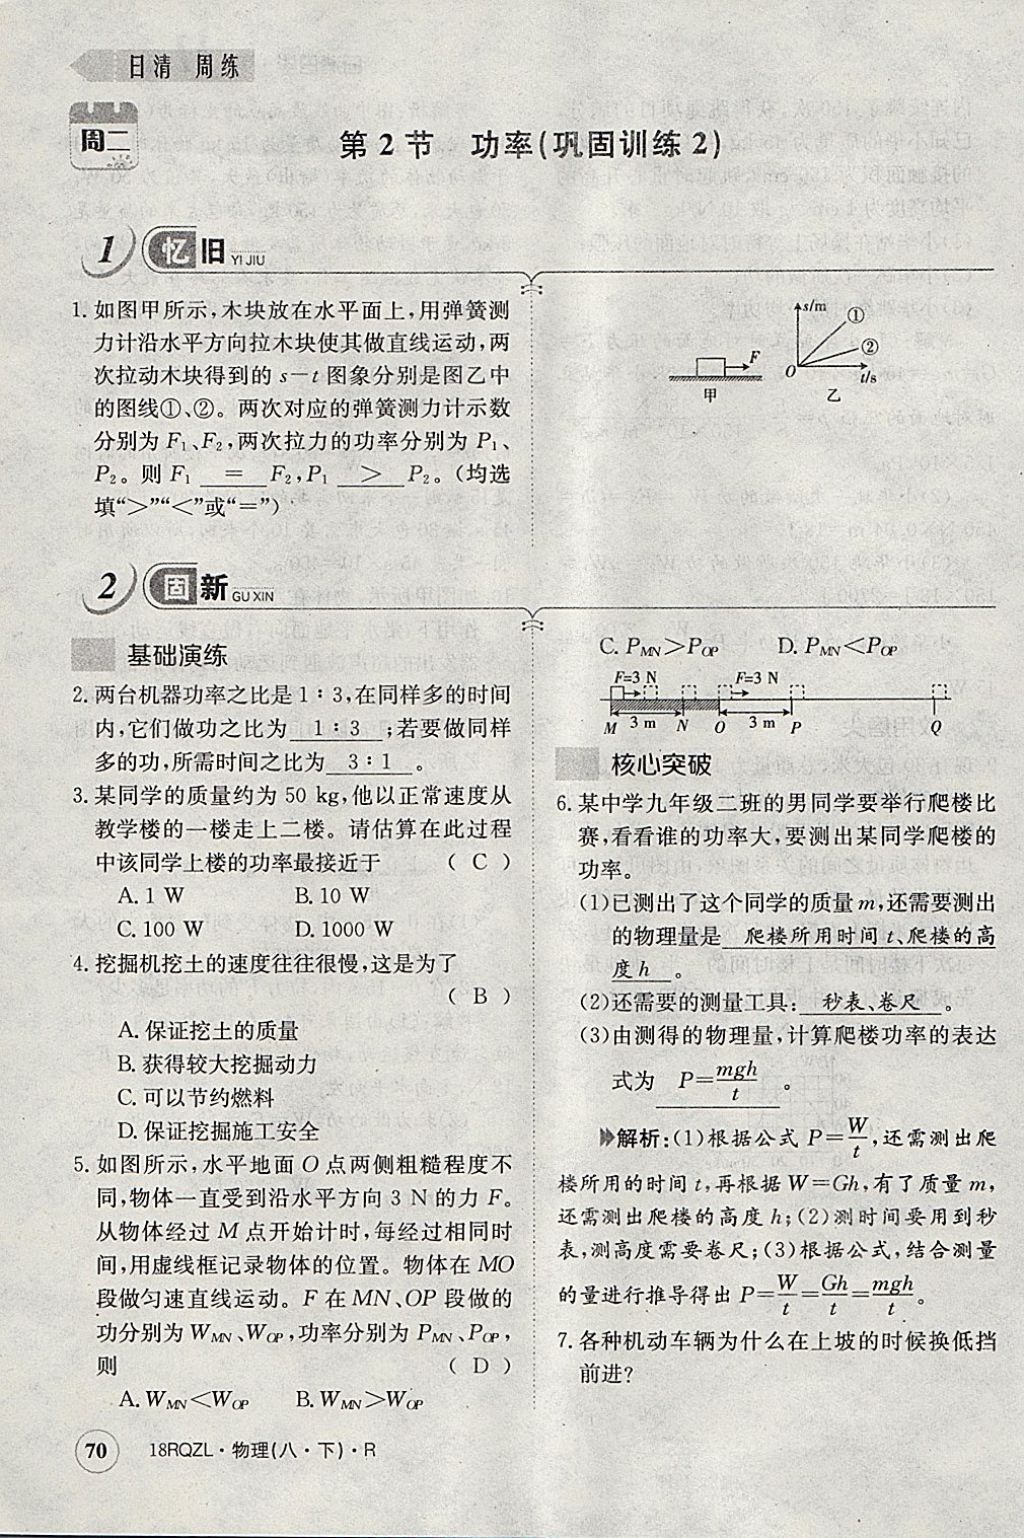 日清 周练
周二
第2节 功率(巩固训练2)
1 忆旧 YI JIU
1. 如图甲所示,木块放在水平面上,用弹簧测
力计沿水平方向拉木块使其做直线运动,两
次拉动木块得到的 s－t 图象分别是图乙中
的图线①、②。两次对应的弹簧测力计示数
分别为 F₁、F₂,两次拉力的功率分别为 P₁、
P₂。则 F₁ = F₂,P₁ > P₂。(均选
填“>”“<”或“=”)
F
甲
s/m
①
②
O
t/s
乙
2 固新 GU XIN
基础演练
2. 两台机器功率之比是 1∶3,在同样多的时间
内,它们做功之比为 1∶3 ;若要做同样
多的功,所需时间之比为 3∶1 。
3. 某同学的质量约为 50 kg,他以正常速度从
教学楼的一楼走上二楼。请估算在此过程
中该同学上楼的功率最接近于 ( C )
A. 1 W B. 10 W
C. 100 W D. 1000 W
4. 挖掘机挖土的速度往往很慢,这是为了
( B )
A. 保证挖土的质量
B. 获得较大挖掘动力
C. 可以节约燃料
D. 保证挖掘施工安全
5. 如图所示,水平地面 O 点两侧粗糙程度不
同,物体一直受到沿水平方向 3 N 的力 F。
从物体经过 M 点开始计时,每经过相同时
间,用虚线框记录物体的位置。物体在 MO
段做匀速直线运动。F 在 MN、OP 段做的
功分别为 W_MN、W_OP,功率分别为 P_MN、P_OP,
则 ( D )
A. W_MN<W_OP B. W_MN>W_OP
C. P_MN>P_OP D. P_MN<P_OP
F=3 N F=3 N
M 3 m N O 3 m P Q
核心突破
6. 某中学九年级二班的男同学要举行爬楼比
赛,看看谁的功率大,要测出某同学爬楼的
功率。
(1)已测出了这个同学的质量 m,还需要测出
的物理量是 爬楼所用时间 t、爬楼的高
度 h 。
(2)还需要的测量工具: 秒表、卷尺 。
(3)由测得的物理量,计算爬楼功率的表达
式为 P=mgh/t 。
解析:(1)根据公式 P=W/t,还需测出爬
楼所用的时间 t,再根据 W=Gh,有了质量 m,
还需测出爬楼的高度 h;(2)测时间要用到秒
表,测高度需要卷尺;(3)根据公式,结合测量
的量进行推导得出 P=W/t=Gh/t=mgh/t。
7. 各种机动车辆为什么在上坡的时候换低挡
前进?
70 18RQZL·物理(八·下)·R